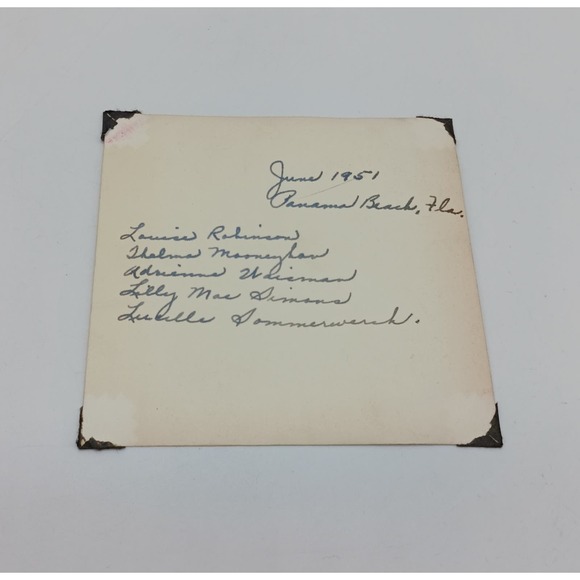 June 1951
Panama Beach, Fla.
Louise Robinson
Thelma Mooneyhan
Adrienne Waisman
Lilly Mae Simons
Lucille Sommerwerck.